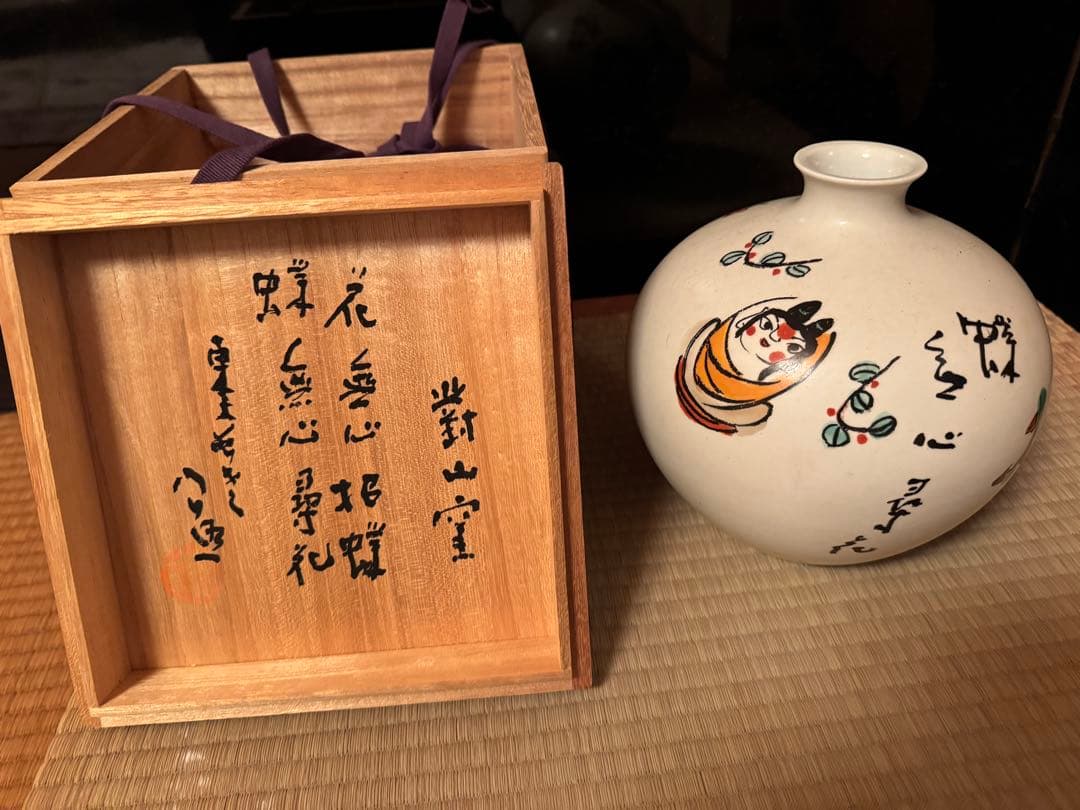 對山窯
花無心招蝶
蝶無心尋花
蝶無心尋花